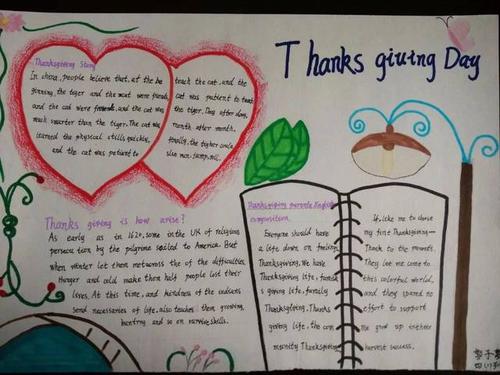 Thanks giving Day
Thanksgiving Story
In china, people believe that, at the be
ginning, the tiger and the meat were friends,
and the cat were friends, and the cat was
much smarter than the tiger. The cat
learned the physical stills quickly,
and the cat was patient to
teach the cat, and the
cat was patient to teat
the tiger. Day after day,
month after month,
finally, the tigher could
Thanks giving is how arise?
As early as in 1620, some in the UK of religious
persecution by the pilgrims sailed to America. But
when winter let them metacross the of the difficulties,
Hunger and cold make them half people lost their
lives. At this time, and kindness of the indians
send necessaries of life, also teaches them growing,
hunting and so on survive skills.
Thanksgiving parade English
composition.
Everyone should have
a life down on
Thanksgiving. We have
Thanksgiving life,
s giving life, family
Thanksgiving, Thanks
giving life, the com
munity Thanksgiving
If, like me to throw
my first Thanksgiving—
Thank to the moments.
They let me come to
this colorful world,
and they spared no
effort to support
me grow up in their
harvest success.